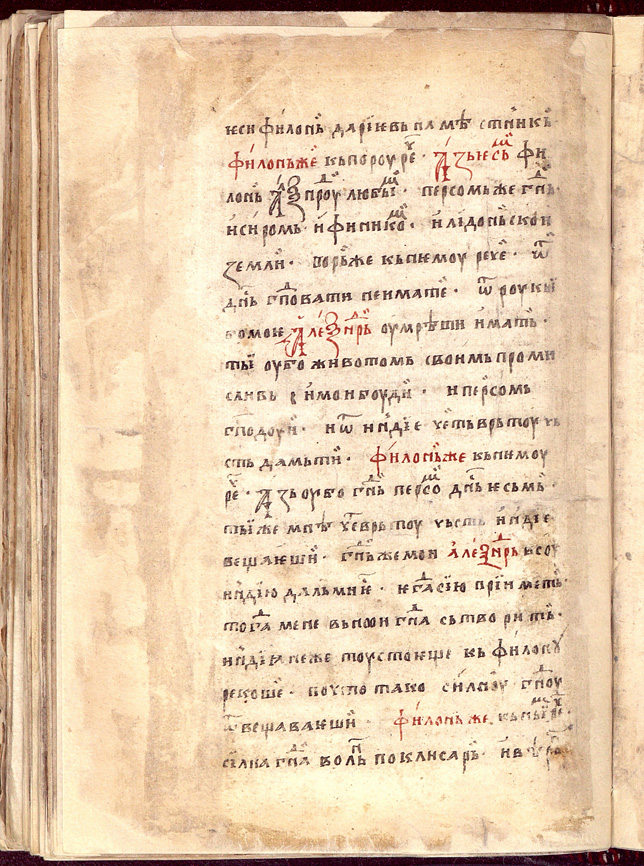 ѥси филонь дарїѥвь намѣстникь
филонь же кь пороу реⷱ҇ · Азь ѥсⷨь фи
лонь Алеѯⷣн҇роу любыⷨи · персомь же гⷣнь ·
и сиромь · и финикоⷨ · и лідоньскои
земли · порь же кь нѥмоу рече · ѿ
дн҃ь гпⷭ҇овати не имате · ѿ роукы
бо моѥ Алеѯⷣн҇рь оумрѣти имать ·
ты оубо животомь своимь проми
сливь и мои боуди · и персомь
гпⷭ҇доуи · и ѿ индїе четврьтоу че
сть дамь ти · филонь же кь нѥмоу
реⷱ҇ · Азь оубо гн҃ь персоⷨ дн҃ь ѥсьмь ·
ты же мнѣ четврьтоу чьсть индїе
вещаѥши · гн҃ь же мои алеѯⷣн҇рь всоу
индїю даль мни · ѥгⷣа сїю прїиметь
тоⷣга мене вь нѥи гпⷭ҇а сьтворить ·
индїане же тоу стоѥще кь филоноу
рекоше · по что тако силноу гпⷭ҇оу
ѿвещаваѥши филонь же кь ныⷨ реⷱ҇
силна гпⷭ҇а воль поклисарь ·